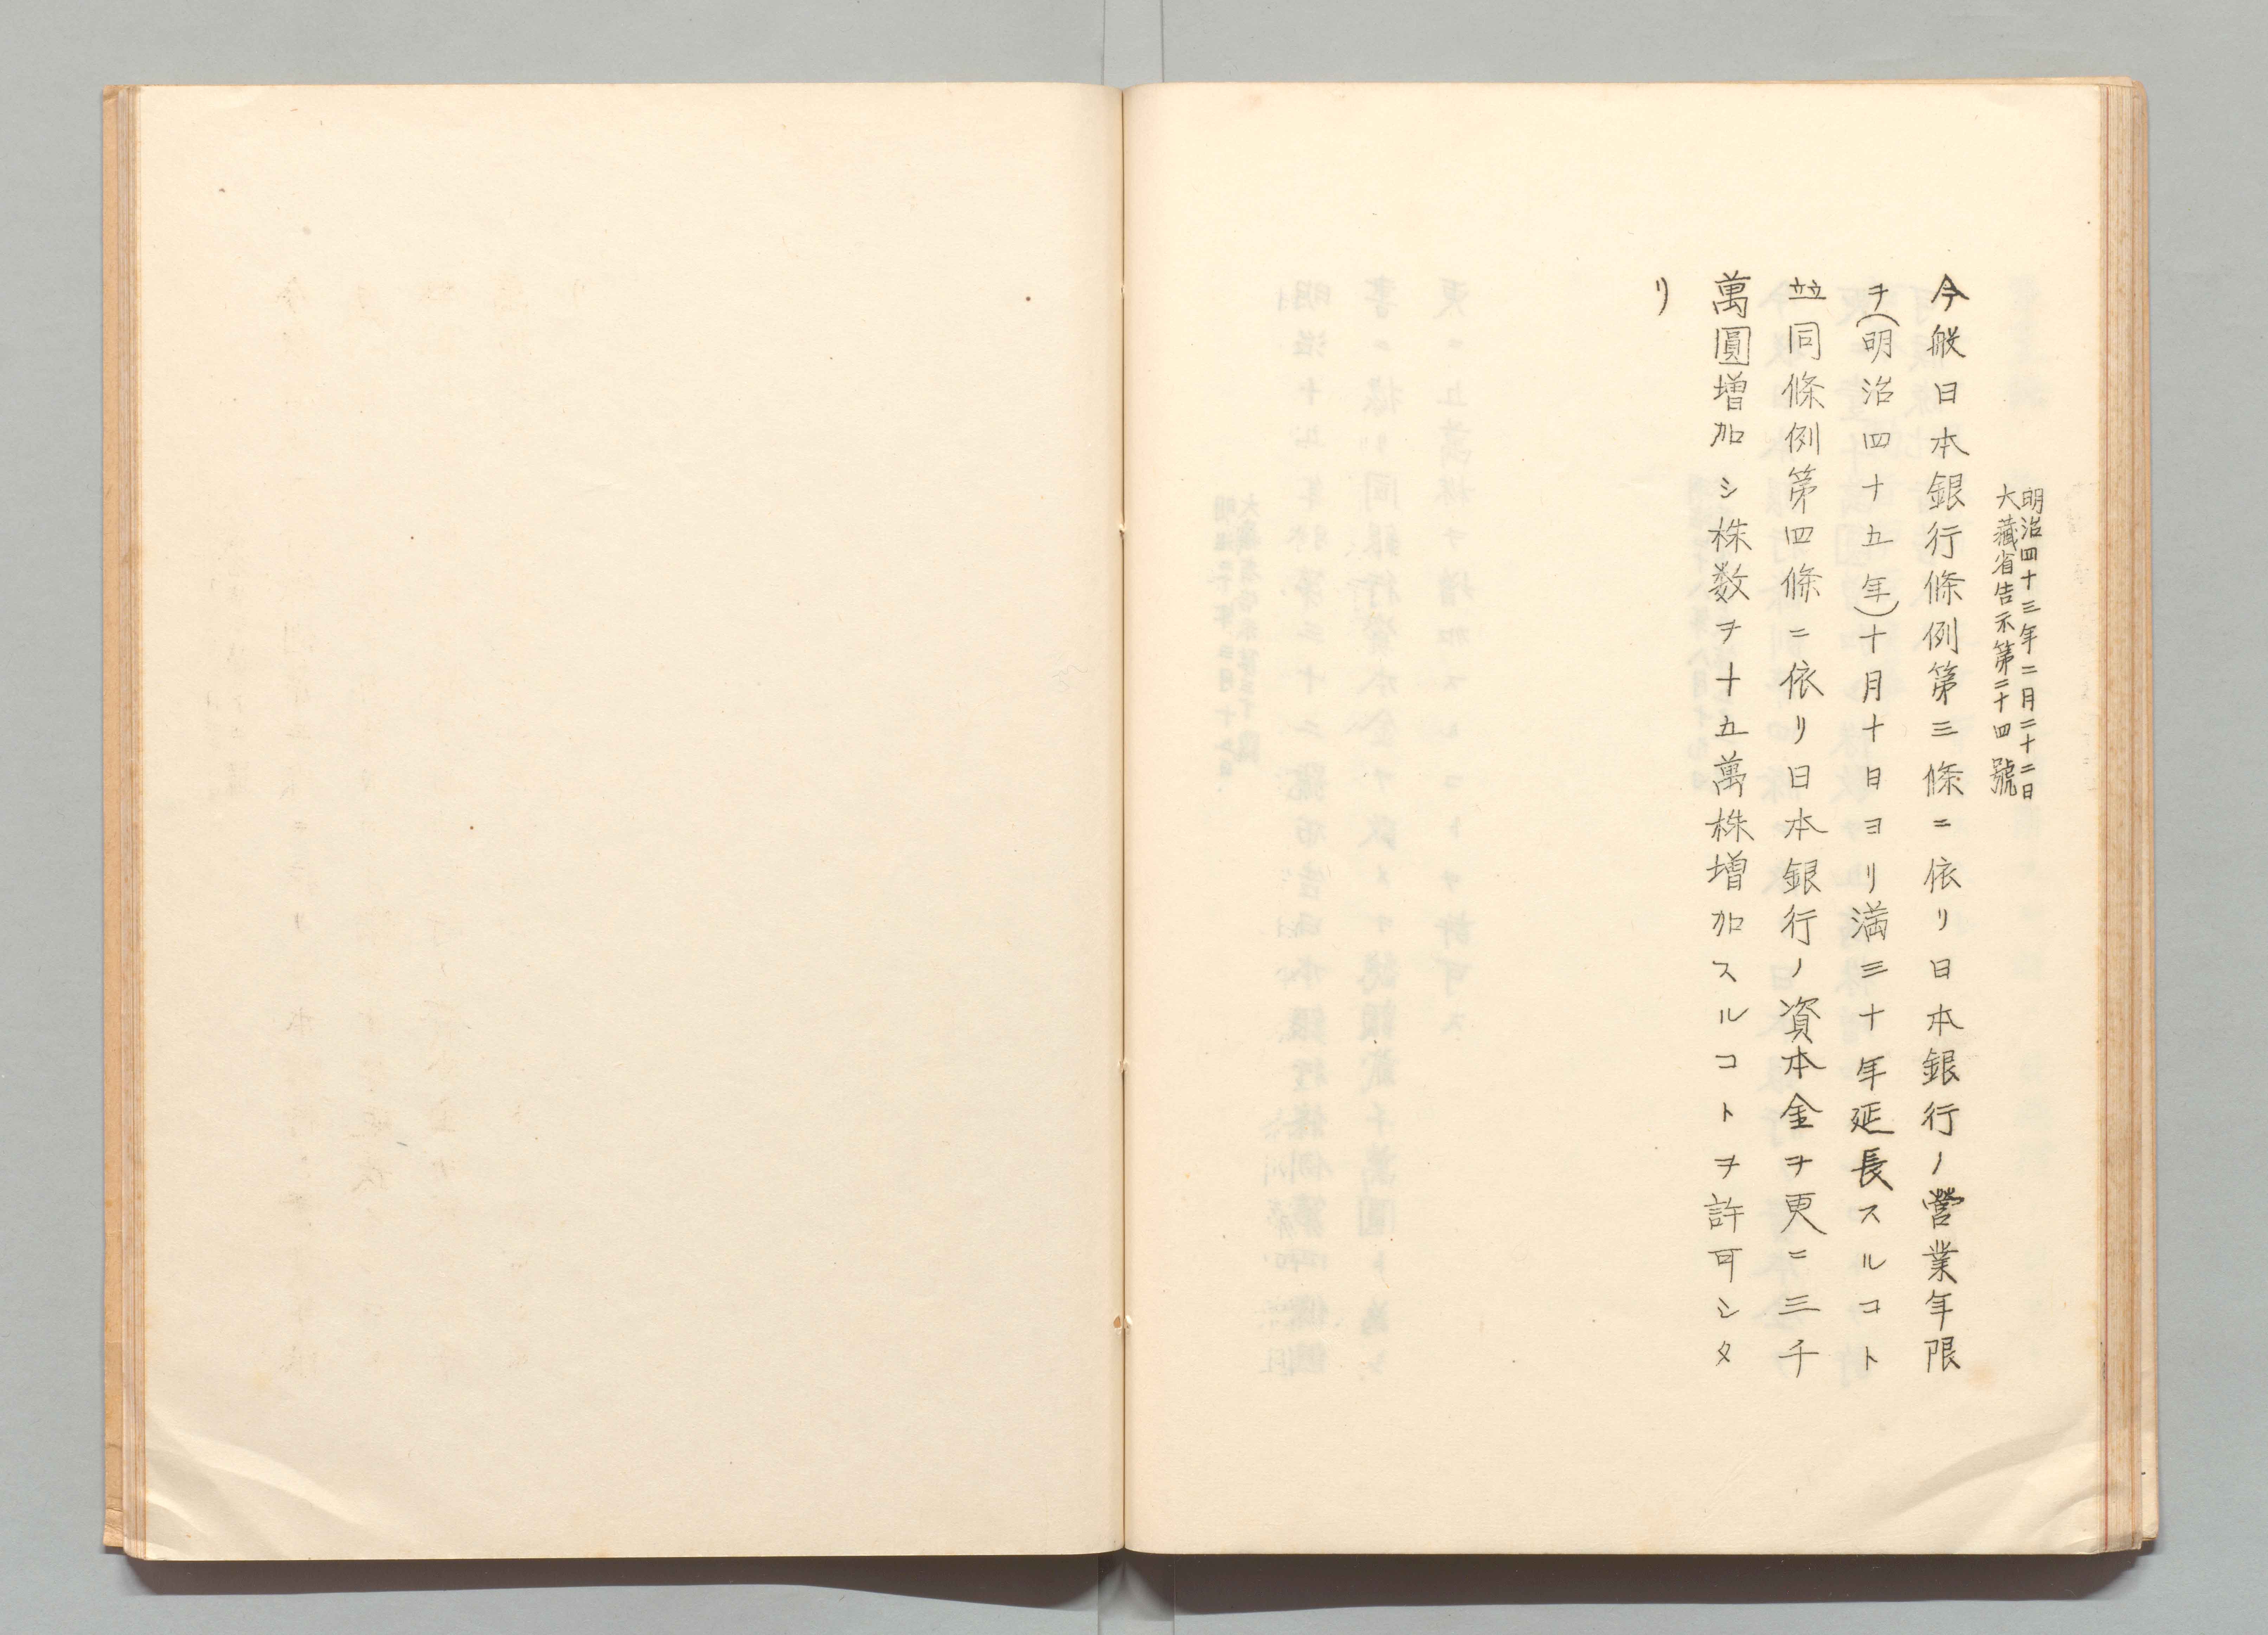 明治四十三年二月二十二日
大藏省告示第二十四號
今般日本銀行條例第三條ニ依リ日本銀行ノ營業年限
ヲ(明治四十五年)十月十日ヨリ満三十年延長スルコト
竝同條例第四條ニ依リ日本銀行ノ資本金ヲ更ニ三千
萬圓増加シ株数ヲ十五萬株増加スルコトヲ許可シタ
リ